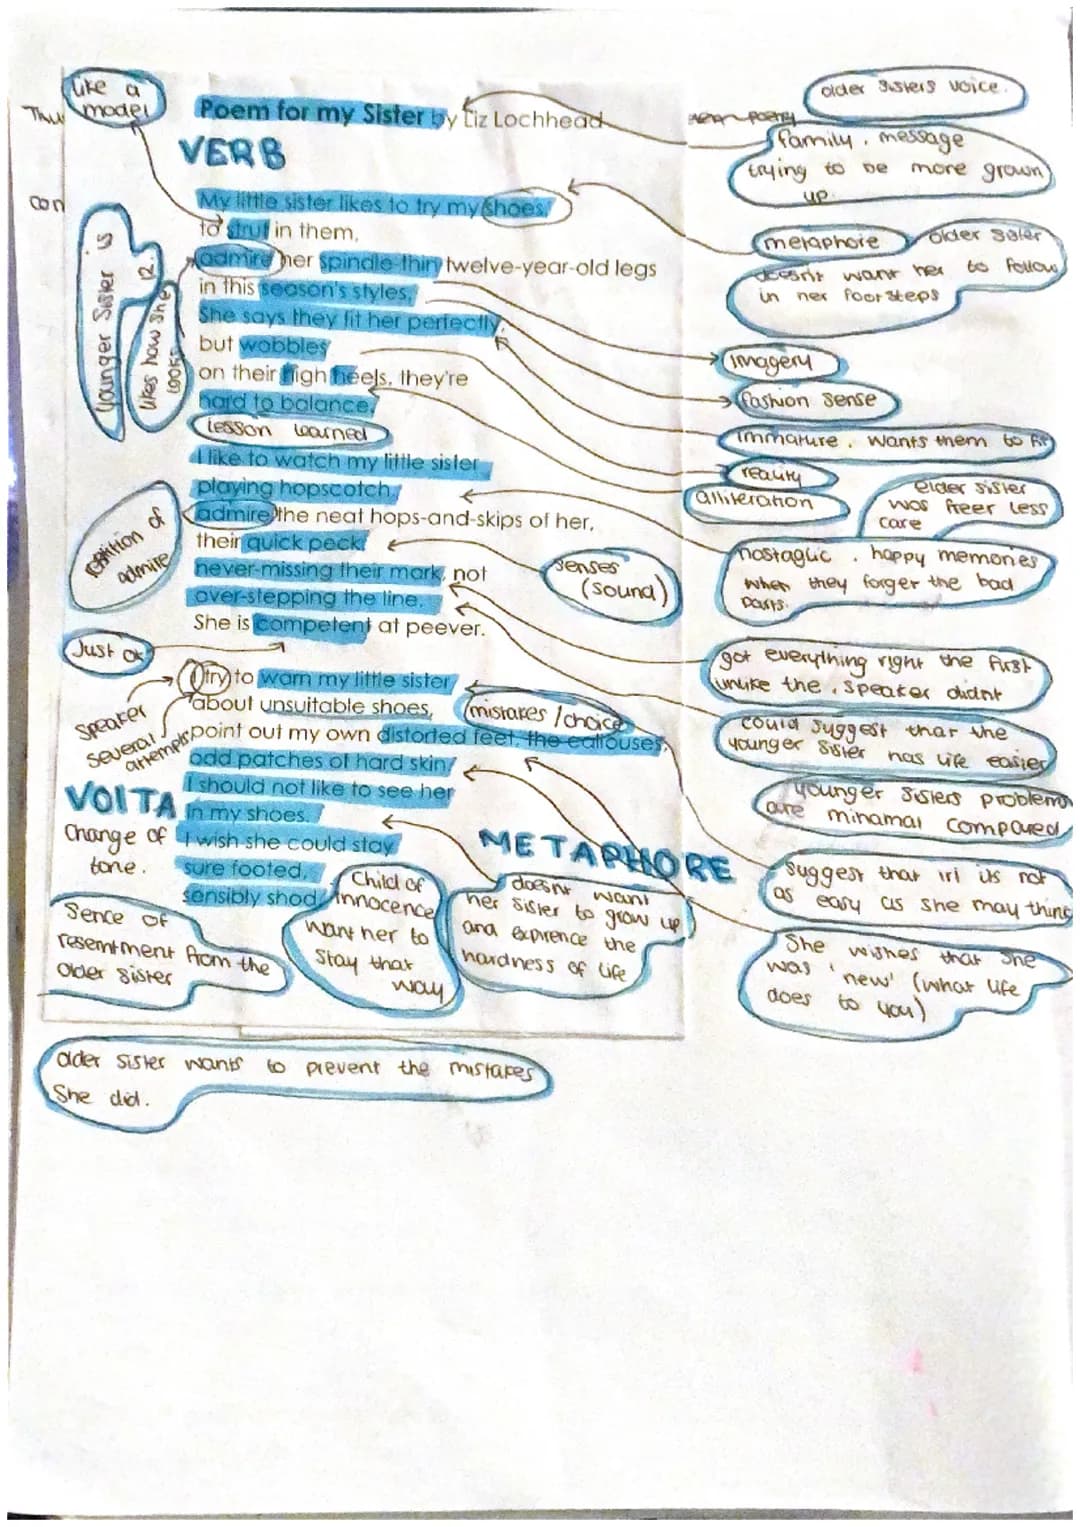 like a
model
Poem for my Sister by Liz Lochhead
VERB
My little sister likes to try my shoes,
to strut in them,
admire her spindle-thin twelve-year-old legs
in this season's styles.
She says they fit her perfectly,
but wobbles
on their high heels, they're
hard to balance.
lesson learned
I like to watch my little sister
playing hopscotch,
admire the neat hops-and-skips of her,
their quick peck,
never-missing their mark, not
over-stepping the line.
She is competent at peever.
I try to warn my little sister
about unsuitable shoes,
point out my own distorted feet, the callouses,
odd patches of hard skin.
I should not like to see her
in my shoes.
I wish she could stay
sure footed,
sensibly shod.
younger sister is
12.
likes how she
looks
repitition of
admire
Just ok
Speaker
several
attempts
mistakes / choice
VOITA
Change of
tone.
METAPHORE
Sence of
resentment from the
older sister
Child of
innocence
want her to
stay that
way
doesnt want
her sister to grow up
and exprience the
hardness of life
older sister wants to prevent the mistakes
She did.
older sisters voice.
family. message
trying to be more grown
up.
metaphore
older sister
doesnt want her to follow
in her footsteps
Imagery
fashion sense
immature. wants them to fit
reality
alliteration
elder sister
was freer less
care
senses
(sound)
nostaglic. happy memories
when they forget the bad
parts.
got everything right the first
unlike the, speaker didnt
could suggest that the
younger sister has life easier
younger sisters problems
are minamal compared
suggest that irl its not
as easy as she may think
She wishes that she
was 'new' (what life
does to you)